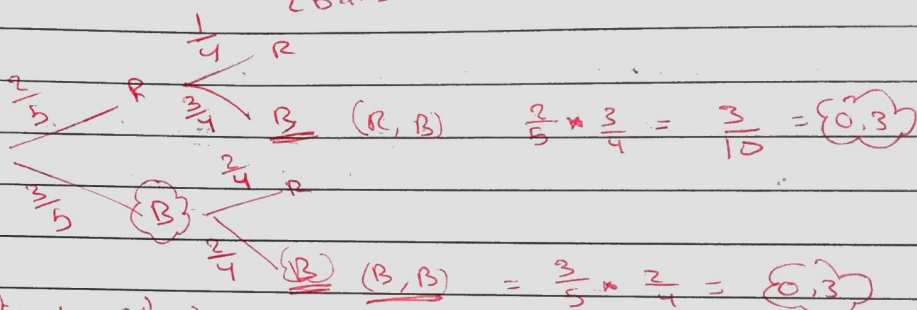 1/4 R
2/5 R
3/4 B (R, B) 2/5 * 3/4 = 3/10 = {0,3}
2/4 R
3/5 {B}
2/4 {B} (B, B) = 3/5 * 2/4 = {0,3}